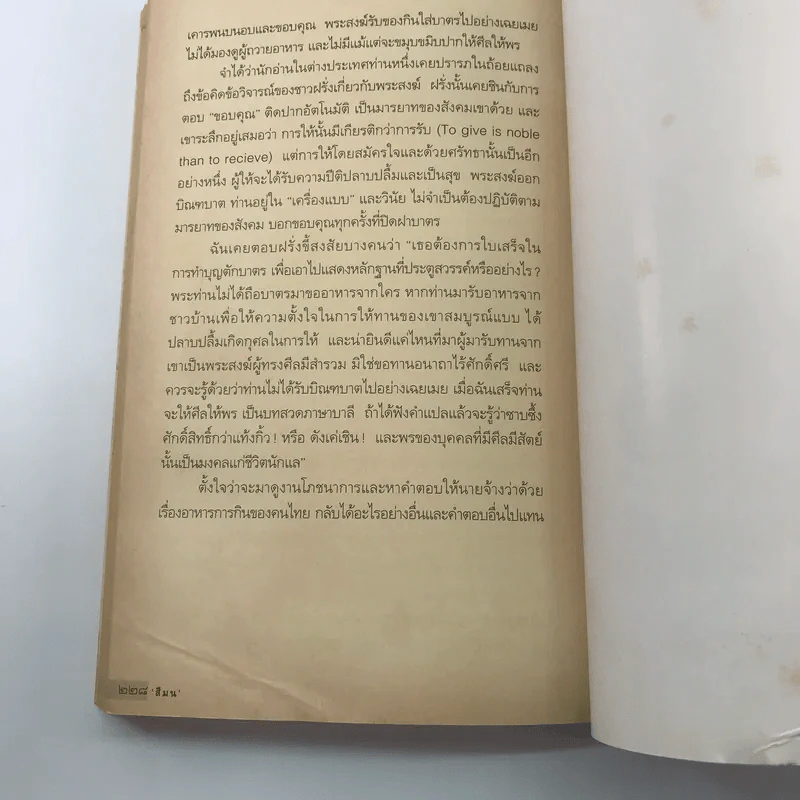 เคารพนบนอบและขอบคุณ พระสงฆ์รับของกินใส่บาตรไปอย่างเฉยเมย
ไม่ได้มองดูผู้ถวายอาหาร และไม่มีแม้แต่จะขมุบขมิบปากให้ศีลให้พร
จำได้ว่านักอ่านในต่างประเทศท่านหนึ่งเคยปรารภในถ้อยแถลง
ถึงข้อคิดข้อวิจารณ์ของชาวฝรั่งเกี่ยวกับพระสงฆ์ ฝรั่งนั้นเคยชินกับการ
ตอบ “ขอบคุณ” ติดปากอัตโนมัติ เป็นมารยาทของสังคมเขาด้วย และ
เขาระลึกอยู่เสมอว่า การให้นั้นมีเกียรติกว่าการรับ (To give is noble
than to recieve) แต่การให้โดยสมัครใจและด้วยศรัทธานั้นเป็นอีก
อย่างหนึ่ง ผู้ให้จะได้รับความปีติปลาบปลื้มและเป็นสุข พระสงฆ์ออก
บิณฑบาต ท่านอยู่ใน “เครื่องแบบ” และวินัย ไม่จำเป็นต้องปฏิบัติตาม
มารยาทของสังคม บอกขอบคุณทุกครั้งที่ปิดฝาบาตร
ฉันเคยตอบฝรั่งขี้สงสัยบางคนว่า “เธอต้องการใบเสร็จใน
การทำบุญตักบาตร เพื่อเอาไปแสดงหลักฐานที่ประตูสวรรค์หรืออย่างไร?
พระท่านไม่ได้ถือบาตรมาขออาหารจากใคร หากท่านมารับอาหารจาก
ชาวบ้านเพื่อให้ความตั้งใจในการให้ทานของเขาสมบูรณ์แบบ ได้
ปลาบปลื้มเกิดกุศลในการให้ และน่ายินดีแค่ไหนที่มาผู้มารับทานจาก
เขาเป็นพระสงฆ์ผู้ทรงศีลมีสำรวม มิใช่ขอทานอนาถาไร้ศักดิ์ศรี และ
ควรจะรู้ด้วยว่าท่านไม่ได้รับบิณฑบาตไปอย่างเฉยเมย เมื่อฉันเสร็จท่าน
จะให้ศีลให้พร เป็นบทสวดภาษาบาลี ถ้าได้ฟังคำแปลแล้วจะรู้ว่าซาบซึ้ง
ศักดิ์สิทธิ์กว่าแท้งกิ้ว! หรือ ดังเค่เชิน! และพรของบุคคลที่มีศีลมีสัตย์
นั้นเป็นมงคลแก่ชีวิตนักแล”
ตั้งใจว่าจะมาดูงานโภชนาการและหาคำตอบให้นายจ้างว่าด้วย
เรื่องอาหารการกินของคนไทย กลับได้อะไรอย่างอื่นและคำตอบอื่นไปแทน
๒๒๘ ‘สีมน’